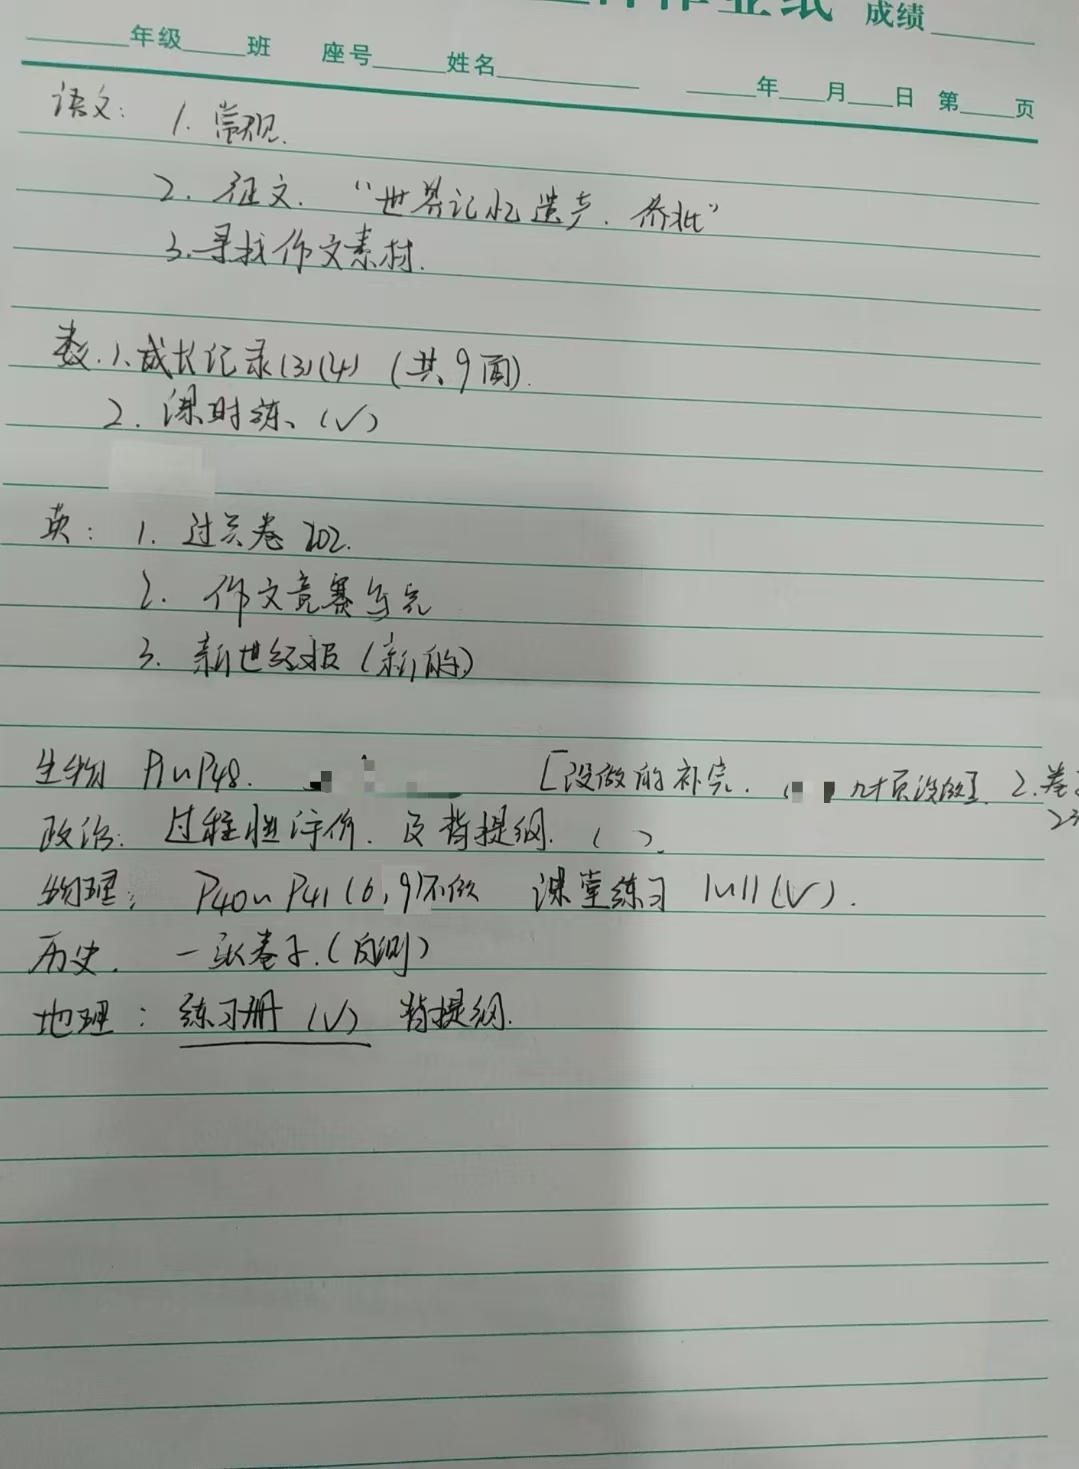 作业纸 成绩
年级 班 座号 姓名 年 月 日 第 页
语文: 1. 常规.
2. 征文. “世界记忆遗产. 侨批”
3. 寻找作文素材.
数. 1. 成长记录(3)(4) (共9面).
2. 课时练、(√)
英: 1. 过关卷 202.
2. 作文竞赛写完
3. 新世纪报(新的)
生物 P1~P48. [没做的补完. 几十页没做]. 2. 卷
政治: 过程性评价. 及背提纲. ( ).
物理: P40~P41(6,9)不做 课堂练习 1~11(√).
历史. 一张卷子.(自测)
地理: 练习册 (√) 背提纲.